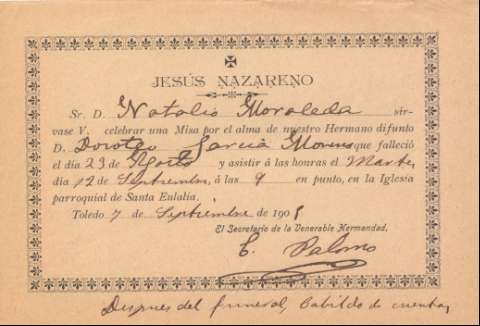 JESÚS NAZARENO
Sr. D. Natalio Moraleda sír-
vase V. celebrar una Misa por el alma de nuestro Hermano difunto
D. Doroteo García Moreno que falleció
el día 23 de Agosto y asistir á las honras el Martes,
día 12 de Septiembre, á las 9 en punto, en la Iglesia
parroquial de Santa Eulalia.
Toledo 7 de Septiembre de 190
El Secretario de la Venerable Hermandad,
E. Palomo
Despues del funeral, Cabildo de cuentas